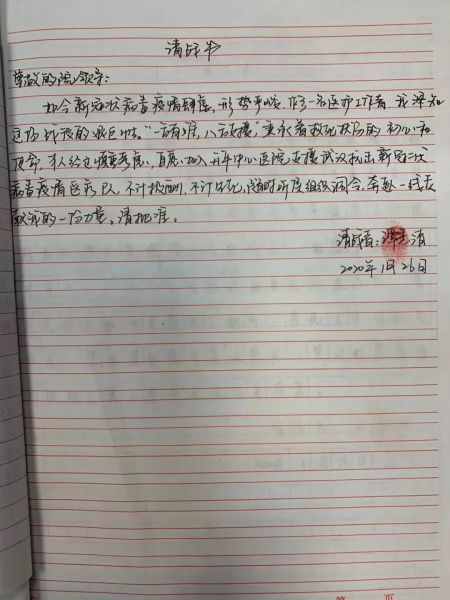 请战书
尊敬的院领导:
如今新冠状病毒疫情肆虐,形势严峻,作为一名医疗工作者,我深知
这场战役的艰巨性。"一方有难,八方支援",秉承着救死扶伤的初心和
使命,本人经过慎重考虑,自愿加入开平中心医院支援武汉抗击新冠状
病毒疫情医疗队,不计报酬,不计生死,随时听候组织调令,奔赴一线贡
献我的一份力量,请批准。
请战者:清
2020年1月26日
第 页